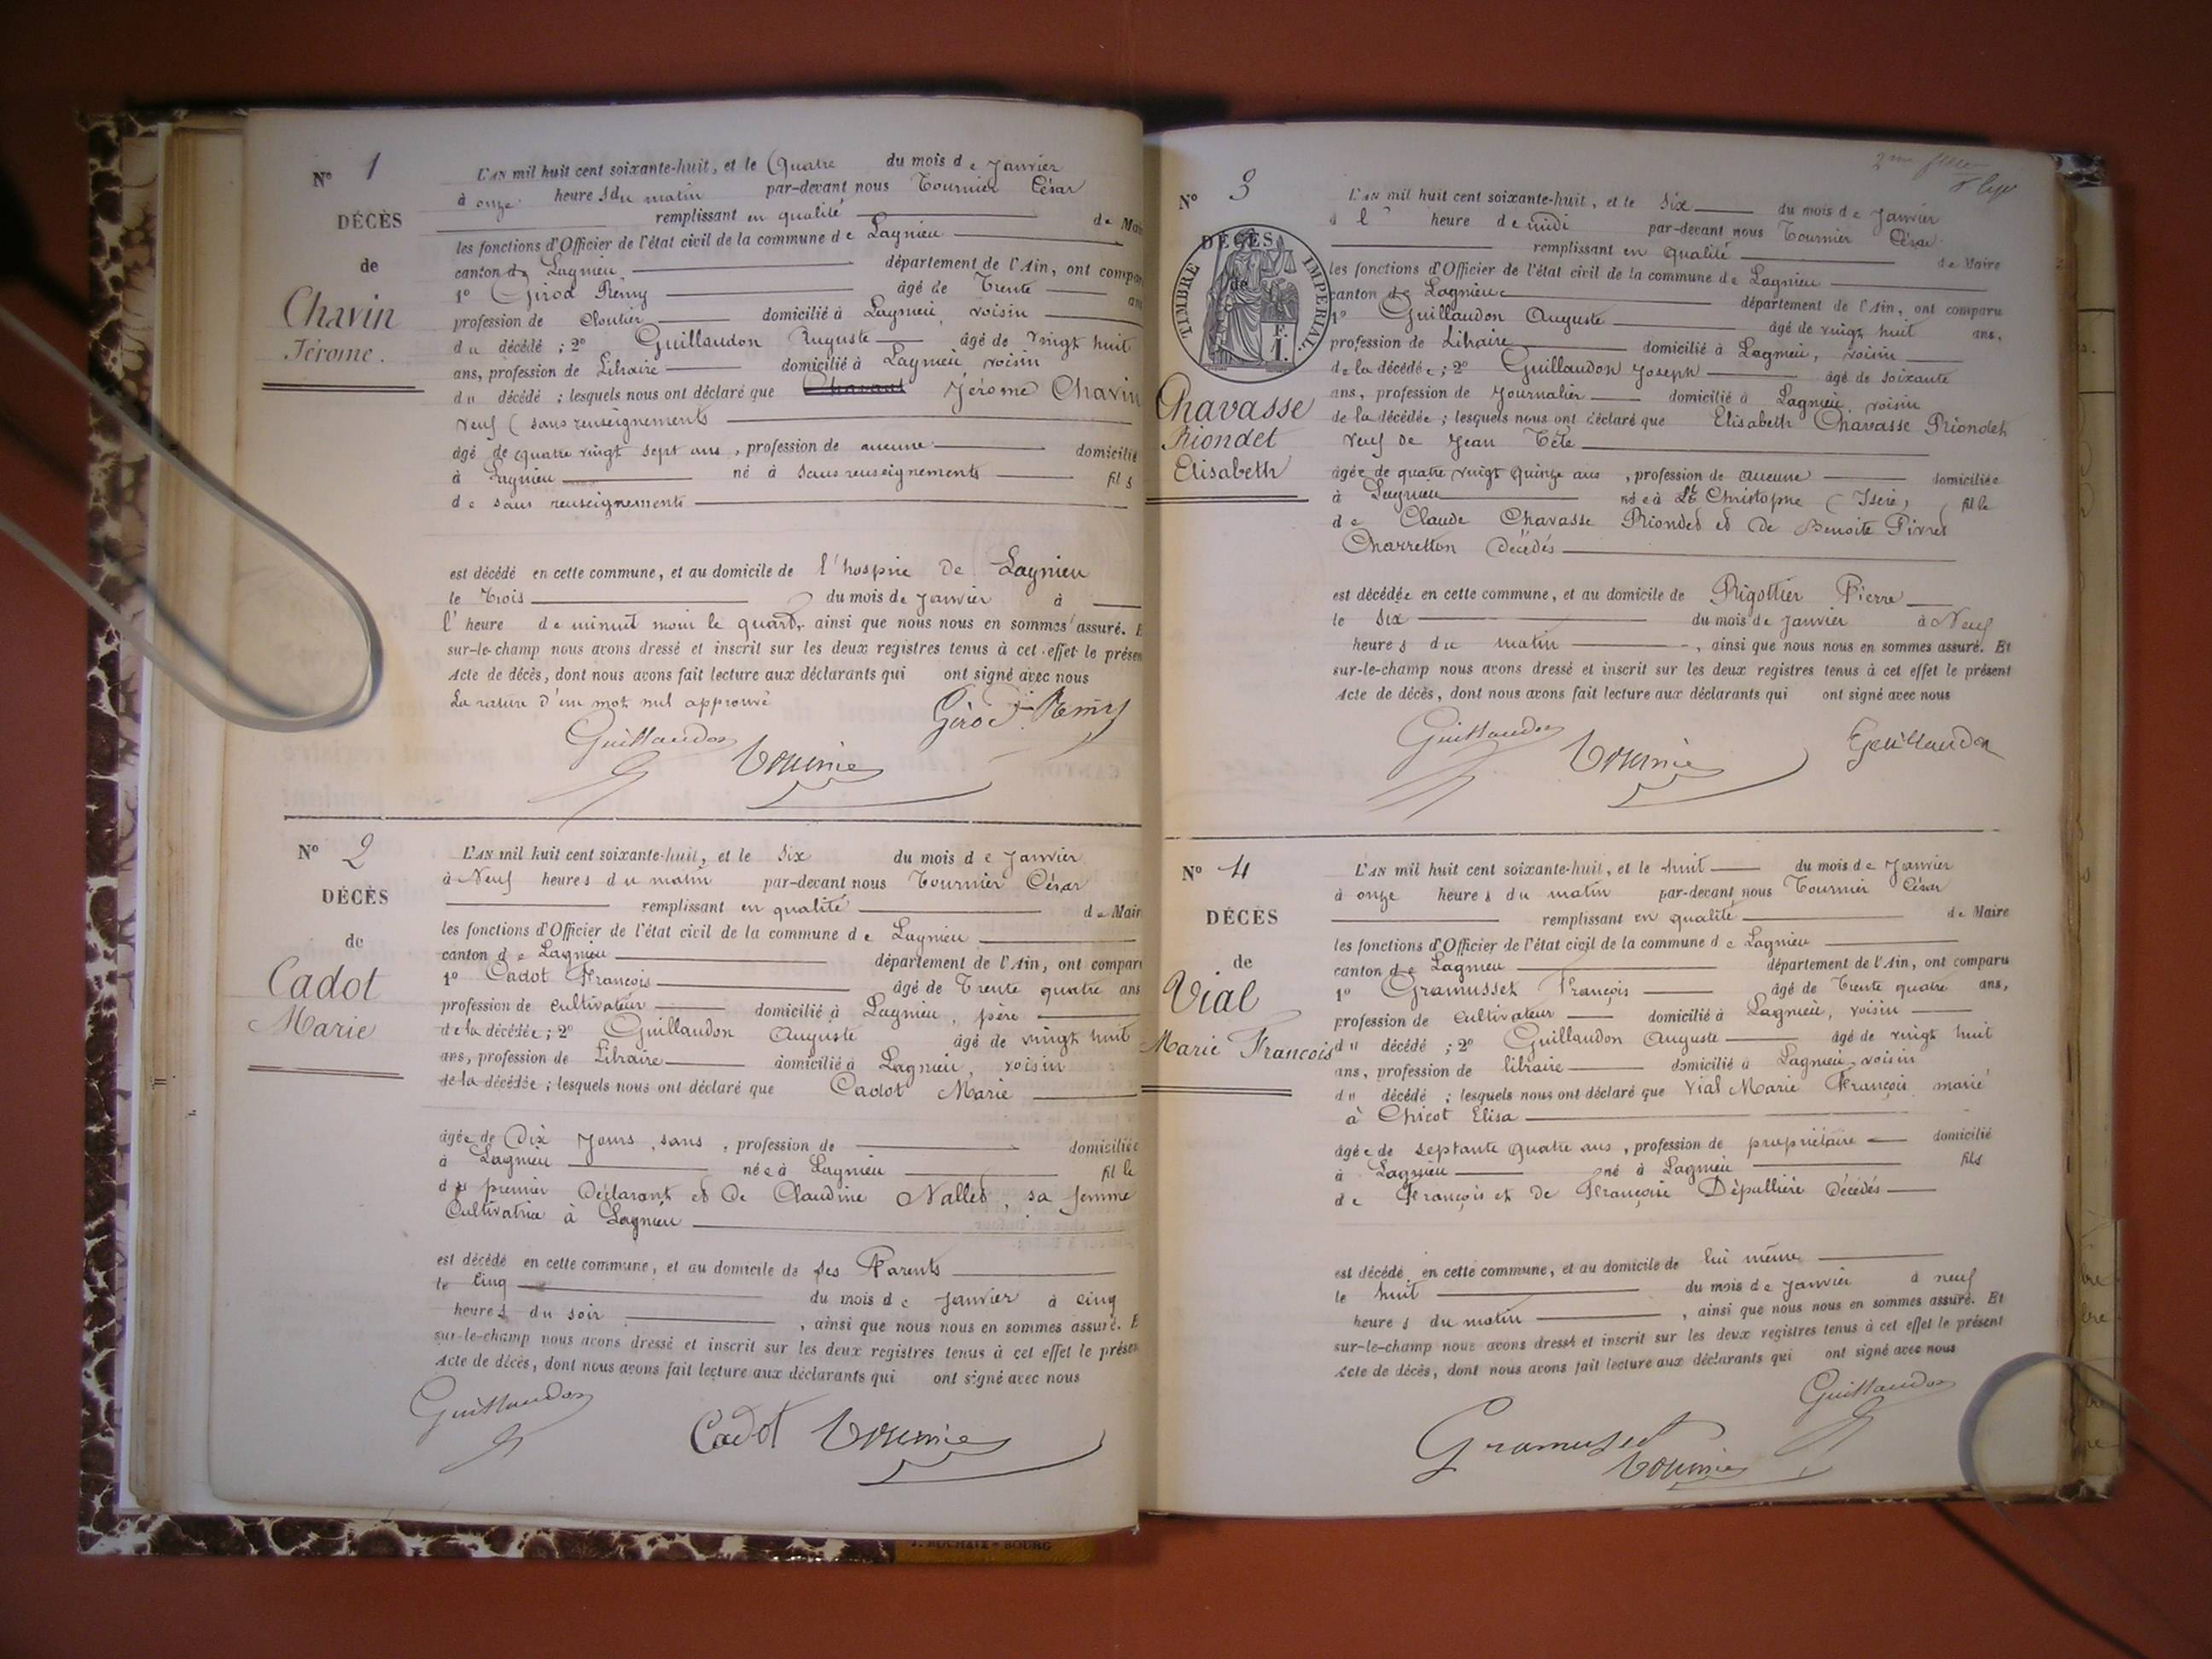 N° 1
DÉCÈS
de
Chavin
Jérome.
L'AN mil huit cent soixante-huit, et le Quatre du mois de Janvier
à onze heures du matin par-devant nous Tournier César
remplissant en qualité de Mai
les fonctions d'Officier de l'état civil de la commune de Lagnieu
canton de Lagnieu département de l'Ain, ont compar
1° Girod Rémy âgé de Trente an
profession de Cloutier domicilié à Lagnieu, voisin
du décédé ; 2° Guillaudon Auguste âgé de vingt huit
ans, profession de Libraire domicilié à Lagnieu voisin
du décédé ; lesquels nous ont déclaré que Jérome Chavin
veuf (sans renseignements
âgé de quatre vingt sept ans, profession de aucune domicilié
à Lagnieu né à sans renseignements fils
de sans renseignements
est décédé en cette commune, et au domicile de l'hospice de Lagnieu
le trois du mois de Janvier à
l' heure de minuit moin le quart, ainsi que nous nous en sommes assuré. E
sur-le-champ nous avons dressé et inscrit sur les deux registres tenus à cet effet le présen
Acte de décès, dont nous avons fait lecture aux déclarants qui ont signé avec nous
La rature d'un mot nul approuvé
Girod Remy
Guillaudon Tournier
N° 2
DÉCÈS
de
Cadot
Marie
L'AN mil huit cent soixante-huit, et le Six du mois de Janvier
à Neuf heures du matin par-devant nous Tournier César
remplissant en qualité de Mair
les fonctions d'Officier de l'état civil de la commune de Lagnieu
canton de Lagnieu département de l'Ain, ont compar
1° Cadot François âgé de Trente quatre ans
profession de cultivateur domicilié à Lagnieu, père
de la décédée ; 2° Guillaudon Auguste âgé de vingt huit
ans, profession de Libraire domicilié à Lagnieu, voisin
de la décédée ; lesquels nous ont déclaré que Cadot Marie
âgée de Dix Jours, sans, profession de domiciliée
à Lagnieu née à Lagnieu fille
du premier Déclarant et de Claudine Nallet, sa femme
Cultivatrice à Lagnieu
est décédé en cette commune, et au domicile de ses Parents
le Cinq du mois de Janvier à cinq
heures du soir, ainsi que nous nous en sommes assuré. E
sur-le-champ nous avons dressé et inscrit sur les deux registres tenus à cet effet le présen
Acte de décès, dont nous avons fait lecture aux déclarants qui ont signé avec nous
Guillaudon
Cadot Tournier
J. ROCHAIX - BOURG
2me
N° 3
DÉCÈS
de
TIMBRE IMPERIAL
Chavasse
Riondet
Elisabeth
L'AN mil huit cent soixante-huit, et le Six du mois de Janvier
à l' heure de midi par-devant nous Tournier César
remplissant en qualité de Maire
les fonctions d'Officier de l'état civil de la commune de Lagnieu
canton de Lagnieu département de l'Ain, ont comparu
1° Guillaudon Auguste âgé de vingt huit ans,
profession de Libraire domicilié à Lagnieu, voisin
de la décédée ; 2° Guillaudon Joseph âgé de soixante
ans, profession de Journalier domicilié à Lagnieu, voisin
de la décédée ; lesquels nous ont déclaré que Elisabeth Chavasse Riondet
veuf de Jean Tête
âgée de quatre vingt quinze ans, profession de aucune domiciliée
à Lagnieu née à St Christophe (Isère) fille
de Claude Chavasse Riondet et de Benoite Pivret
Charretton Décédés
est décédée en cette commune, et au domicile de Rigottier Pierre
le Six du mois de Janvier à Neuf
heures du matin, ainsi que nous nous en sommes assuré. Et
sur-le-champ nous avons dressé et inscrit sur les deux registres tenus à cet effet le présent
Acte de décès, dont nous avons fait lecture aux déclarants qui ont signé avec nous
Guillaudon Tournier Guillaudon
N° 4
DÉCÈS
de
Vial
Marie François
L'AN mil huit cent soixante-huit, et le huit du mois de Janvier
à onze heures du matin par-devant nous Tournier César
remplissant en qualité de Maire
les fonctions d'Officier de l'état civil de la commune de Lagnieu
canton de Lagnieu département de l'Ain, ont comparu
1° Gramusset François âgé de Trente quatre ans,
profession de Cultivateur domicilié à Lagnieu, voisin
du décédé ; 2° Guillaudon Auguste âgé de vingt huit
ans, profession de libraire domicilié à Lagnieu, voisin
du décédé ; lesquels nous ont déclaré que Vial Marie François marié
à Chicot Elisa
âgée de septante quatre ans, profession de propriétaire domicilié
à Lagnieu né à Lagnieu fils
de François et de Françoise Dépullière Décédés
est décédé en cette commune, et au domicile de lui même
le huit du mois de Janvier à neuf
heures du matin, ainsi que nous nous en sommes assuré. Et
sur-le-champ nous avons dressé et inscrit sur les deux registres tenus à cet effet le présent
Acte de décès, dont nous avons fait lecture aux déclarants qui ont signé avec nous
Guillaudon
Gramuset
Tournier